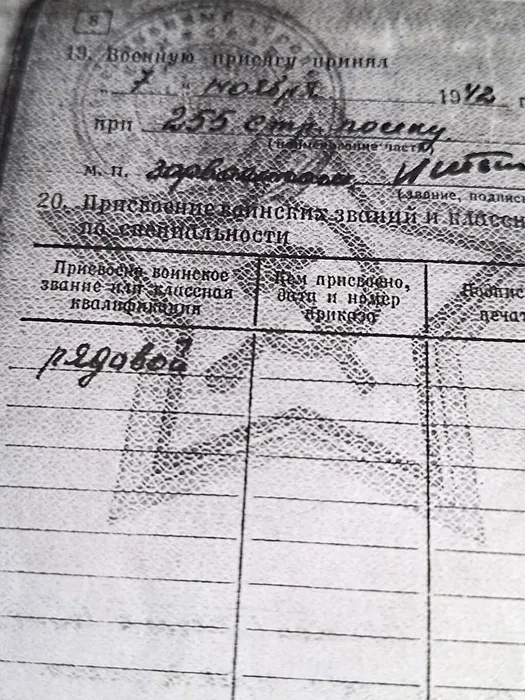 8
19. Военную присягу принял
„ 7 „ ноября 1942 г
при 255 стр. полку
(наименование части)
м. п.
(звание, подпись
20. Присвоение воинских званий и классн
по специальности
Присвоено воинское звание или классная квалификация
Кем присвоено, дата и номер приказа
Подпис
печат
рядовой